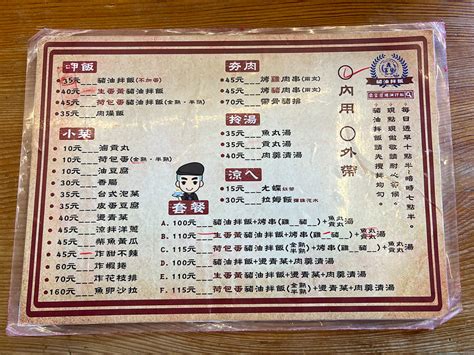 呷飯
35元 豬油拌飯(不加蛋)
40元 生蛋黃豬油拌飯
45元 荷包蛋豬油拌飯(全熟、半熟)
35元 肉燥飯
小菜
10元 滷貢丸
10元 荷包蛋(全熟、半熟)
30元 油豆腐
30元 香腸
35元 台式泡菜
35元 皮蛋豆腐
40元 燙青菜
45元 涼拌洋蔥
45元 柴魚黃瓜
45元 炸甜不辣
60元 炸蝦捲
70元 炸花枝排
160元 魚卵沙拉
夯肉
45元 烤雞肉串
45元 烤豬肉串
70元 帶骨豬排
拎湯
35元 魚丸湯
35元 貢丸湯
40元 肉羹清湯
涼へ
15元 尤蝶
30元 拉姆飯
套餐
A. 100元 豬油拌飯+烤串(雞 豬 )+魚丸 貢丸湯
B. 110元 生蛋黃豬油拌飯+烤串(雞 豬 )+魚丸 貢丸湯
C. 115元 荷包蛋豬油拌飯(全熟 半熟)+烤串(雞 豬 )+魚丸 貢丸湯
D. 105元 豬油拌飯+燙青菜+肉羹清湯
E. 110元 生蛋黃豬油拌飯+燙青菜+肉羹清湯
F. 115元 荷包蛋豬油拌飯(全熟 半熟)+燙青菜+肉羹清湯
豬油拌飯
內用
外帶
每日選早十點半~晚時七點半。
現點現做敬請耐心等候。
豬油拌飯請先攪拌均勻。